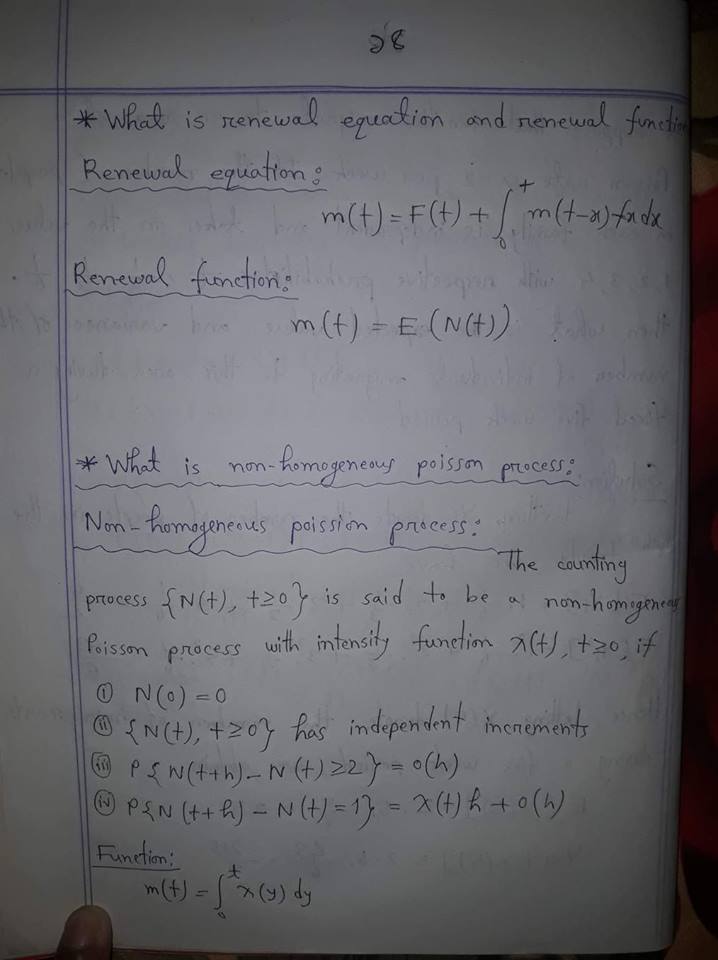 28
* What is renewal equation and renewal function
Renewal equation:
m(t) = F(t) + ∫₀ᵗ m(t-x) fx dx
Renewal function:
m(t) = E (N(t))
* What is non-homogeneous poisson process:
Non-homogeneous poission process:
The counting
process {N(t), t≥0} is said to be a non-homogeneous
Poisson process with intensity function λ(t), t≥0, if
(i) N(0) = 0
(ii) {N(t), t≥0} has independent increments
(iii) P{N(t+h) - N(t) ≥2} = o(h)
(iv) P{N(t+h) - N(t) = 1} = λ(t) h + o(h)
Function:
m(t) = ∫₀ᵗ λ(y) dy